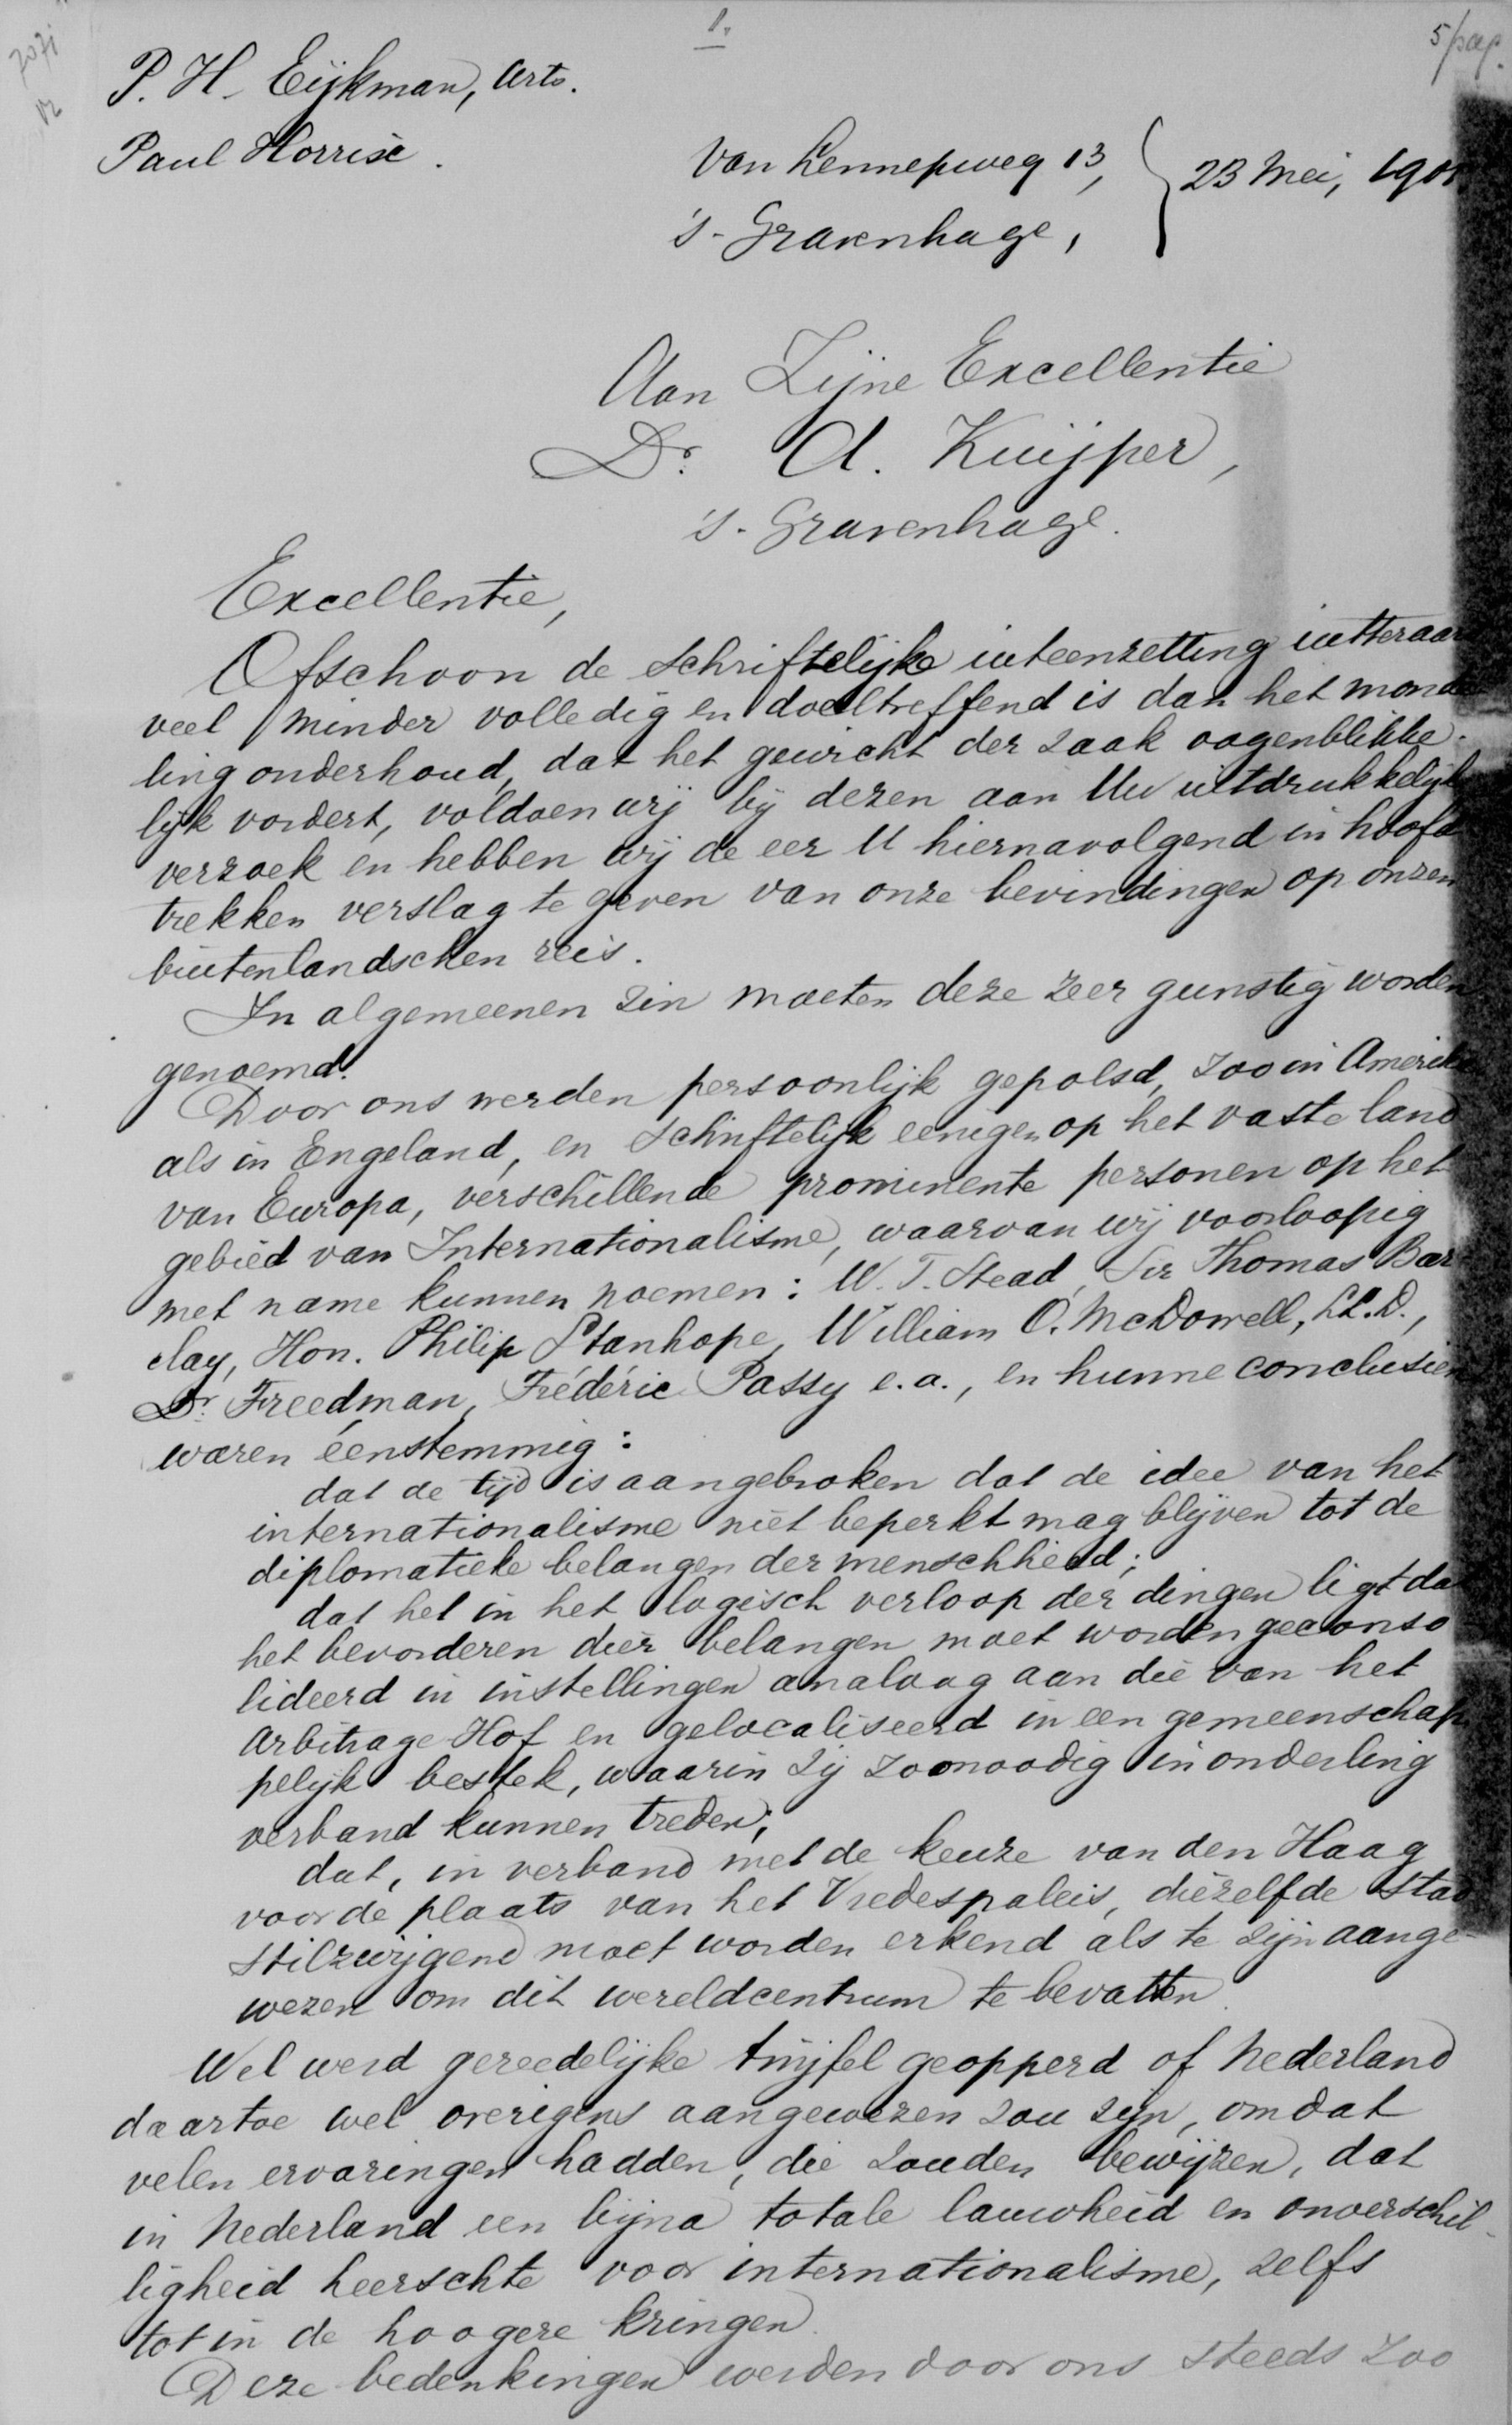 1.
5/pap.
7071
P. H. Eijkman, Arts.
Paul Horrix.
Van Lennepweg 13,
23 Mei, 190
's-Gravenhage,
Aan Zijne Excellentie
Dr. A. Kuijper,
's-Gravenhage.
Excellentie,
Ofschoon de schriftelijke uiteenzetting uitteraar
veel minder volledig en doeltreffend is dan het monde
ling onderhoud, dat het gewicht der zaak oogenblikke-
lijk vordert, voldoen wij bij dezen aan Uw uitdrukkelijk
verzoek en hebben wij de eer U hiernavolgend in hoofd
trekken verslag te geven van onze bevindingen op onzen
buitenlandschen reis.
In algemeenen zin moeten deze zeer gunstig worden
genoemd.
Door ons werden persoonlijk gepolsd, zoo in Amerika
als in Engeland, en schriftelijk eenigen op het vaste land
van Europa, verschillende prominente personen op het
gebied van Internationalisme, waarvan wij voorloopig
met name kunnen noemen: W. T. Stead, Sir Thomas Bar-
clay, Hon. Philip Stanhope, William O. McDowell, LL.D.,
Dr. Freedman, Frédéric Passy e.a., en hunne conclusien
waren éenstemmig:
dat de tijd is aangebroken dat de idee van het
internationalisme niet beperkt mag blijven tot de
diplomatieke belangen der menschheid;
dat het in het logisch verloop der dingen ligt da
het bevorderen dier belangen moet worden geconso
lideerd in instellingen analoog aan die van het
Arbitrage Hof en gelocaliseerd in een gemeenschap
pelijk bestek, waarin zij zoonoodig in onderling
verband kunnen treden;
dat, in verband met de keuze van den Haag
voor de plaats van het Vredespaleis, diezelfde stad
stilzwijgend moet worden erkend als te zijn aange-
wezen om dit wereldcentrum te bevatten.
Wel werd gereedelijke twijfel geopperd of Nederland
daartoe wel overigens aangewezen zou zijn, omdat
velen ervaringen hadden, die zouden bewijzen, dat
in Nederland een bijna totale lauwheid en onverschil-
ligheid heerschte voor internationalisme, zelfs
tot in de hoogere kringen.
Deze bedenkingen werden door ons steeds zoo